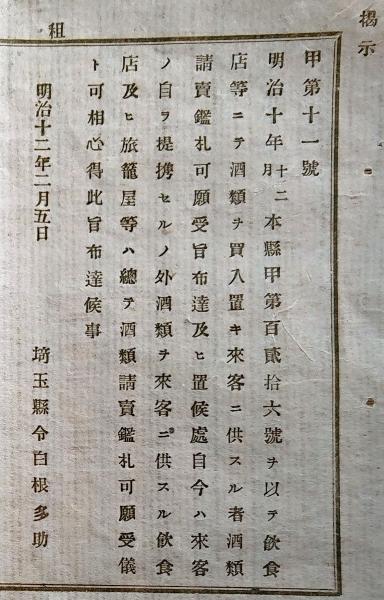 揭示
租
甲第十一號
明治十年十二月本縣甲第百貳拾六號ヲ以テ飮食
店等ニテ酒類ヲ買入置キ來客ニ供スル者酒類
請賣鑑札可願受旨布達及ヒ置候處自今ハ來客
ノ自ラ提携セルノ外酒類ヲ來客ニ供スル飮食
店及ヒ旅籠屋等ハ總テ酒類請賣鑑札可願受儀
ト可相心得此旨布達候事
明治十二年二月五日
埼玉縣令白根多助